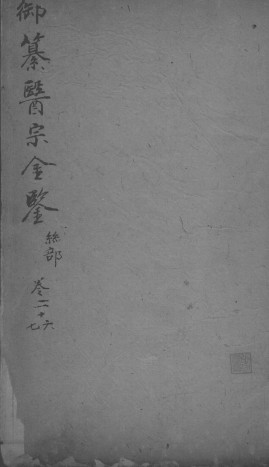 御纂醫宗金鑒
絲部
卷二十六
七